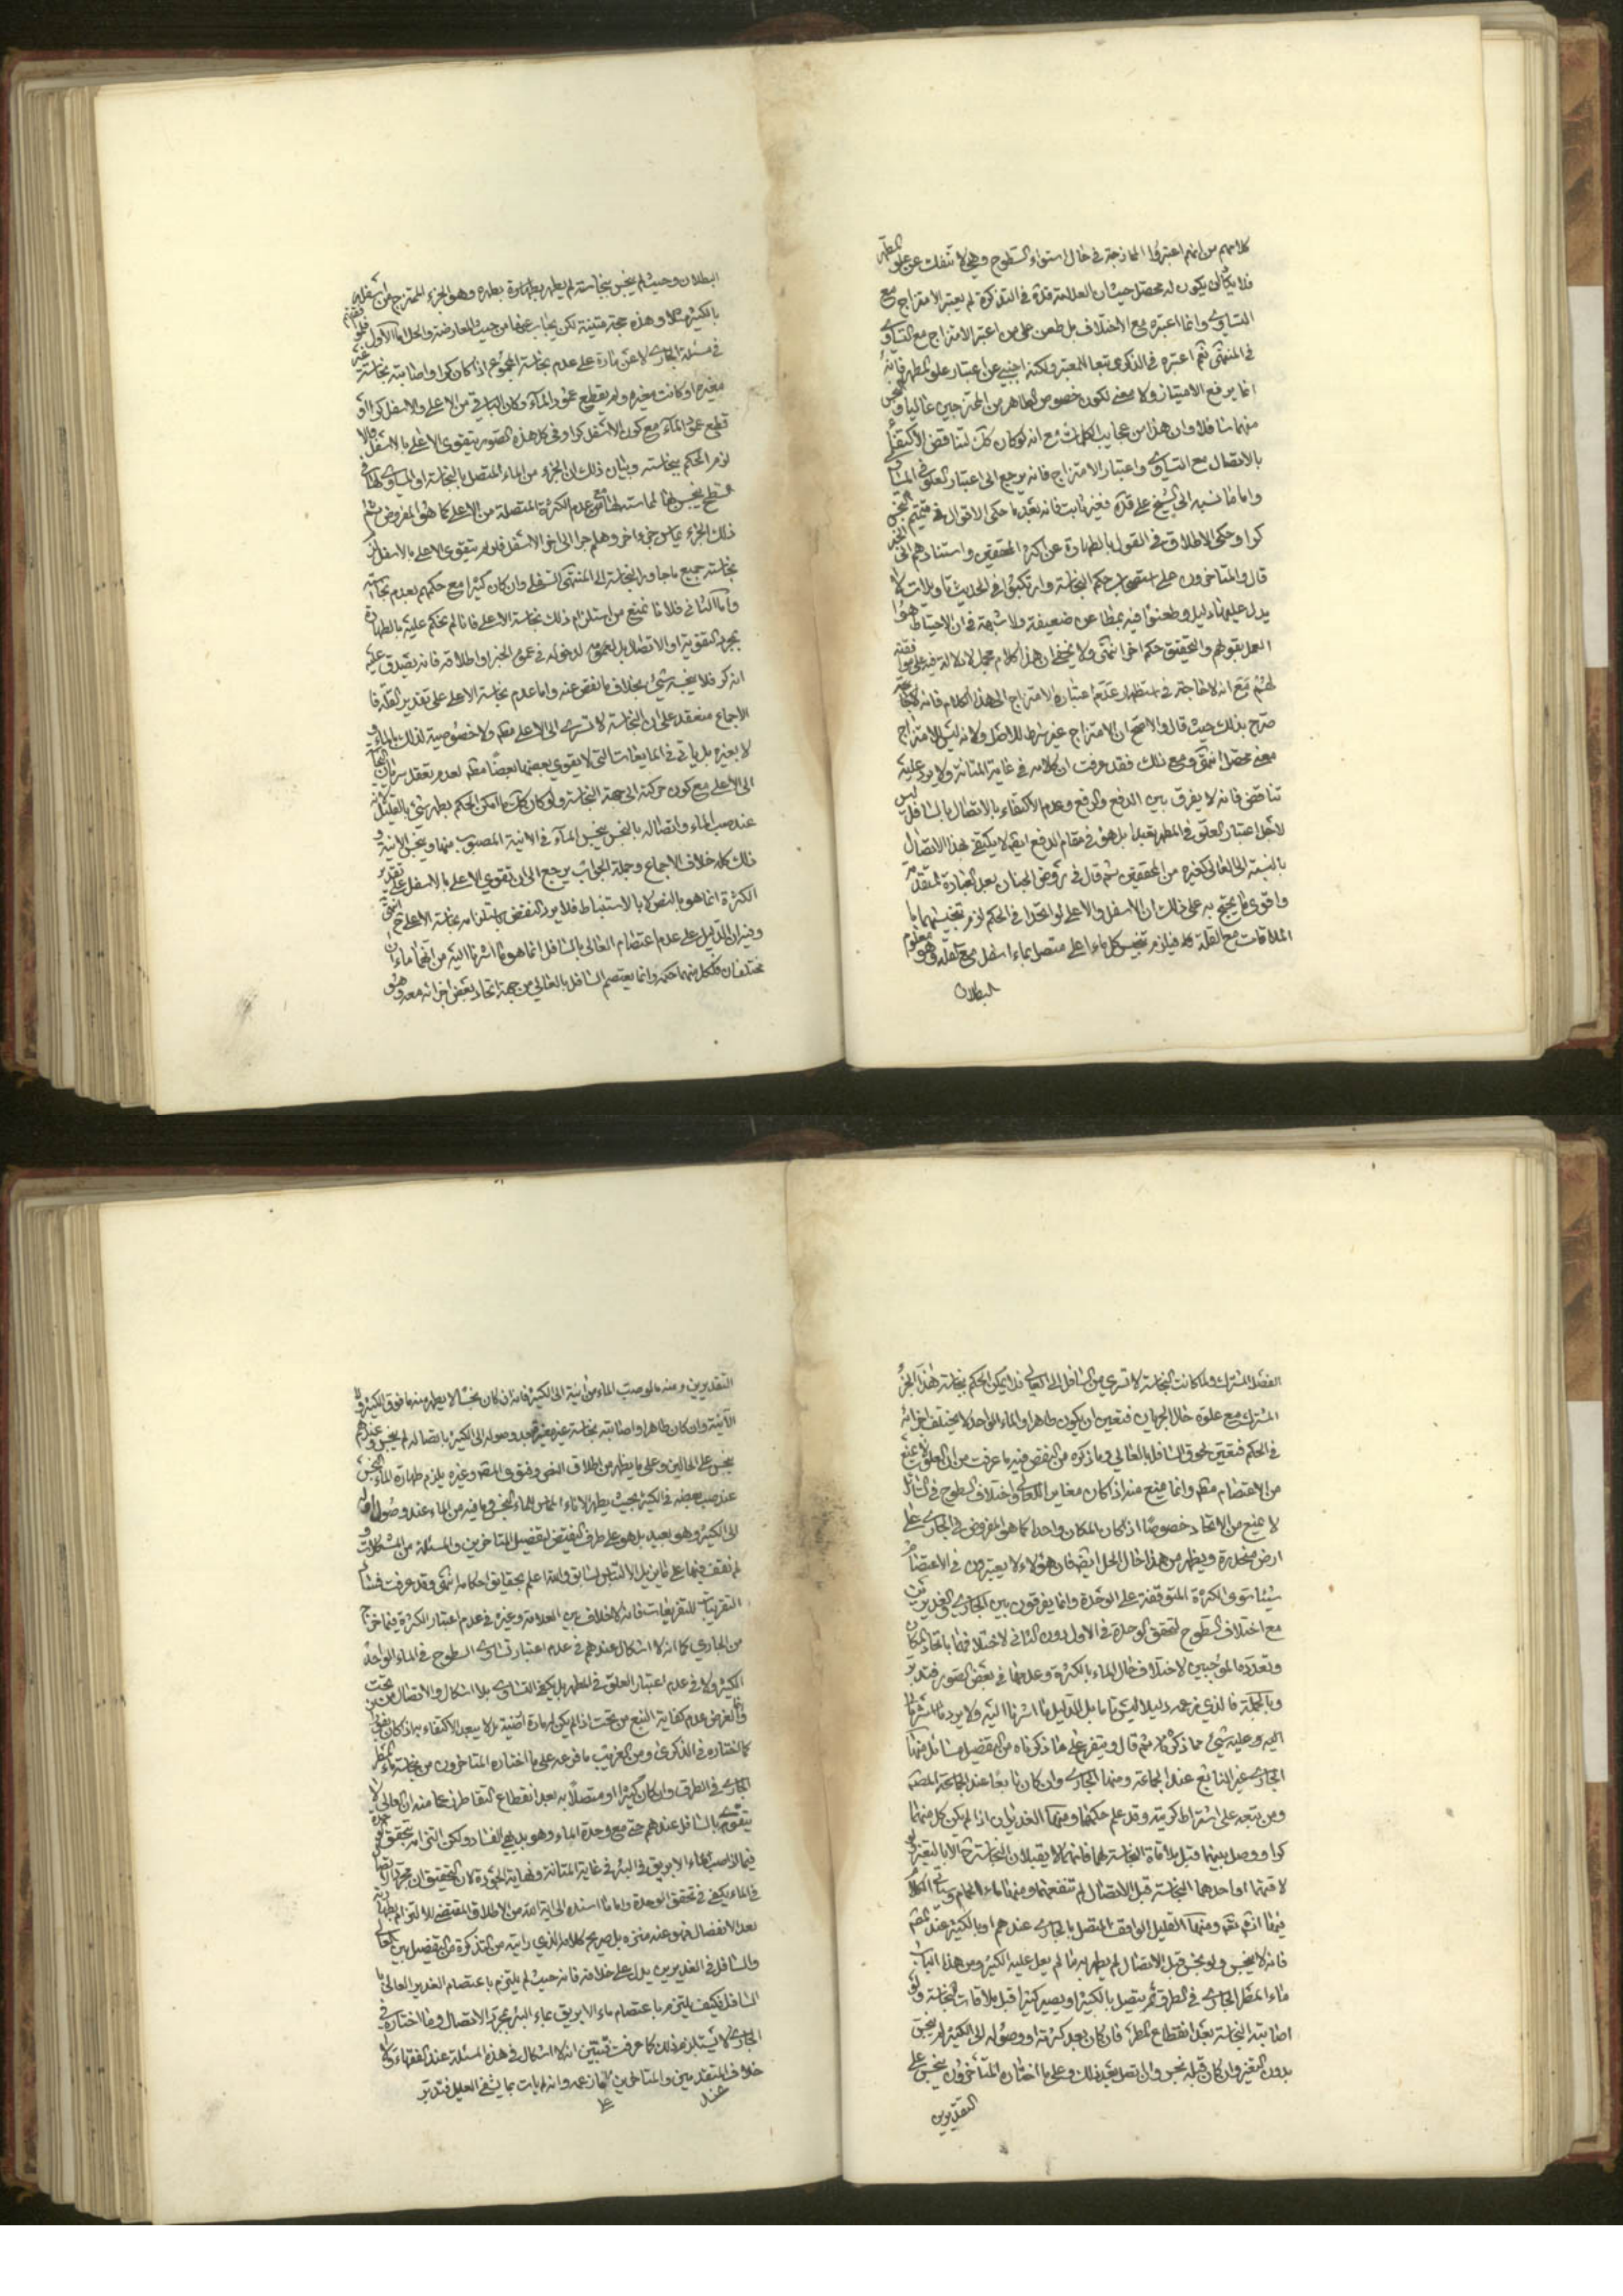 كلامهم من انهم اعتبروا الممازجة في حال استواء السطوح وهي لا تنفك عن علو المطهر
فلا يكاد يكون له محصل حيث ان العلامة قده في التذكرة لم يعتبر الامتزاج مع
التساوي وانما اعتبره مع الاختلاف بل طعن على من اعتبر الامتزاج مع التساوي
في المنتهى ثم اعتبره في الذكرى تبعا للمعتبر ولكنه اجنبي عن اعتبار علو المطهر فانه
انما يرفع الامتياز ولا معنى لكون خصوص الطاهر من الممتزجين عاليا والنجس
منهما سافلا وان هذا من عجايب الكلمات مع انه لو كان كك لتناقض الاكتفاء
بالاتصال مع التساوي واعتبار الامتزاج فانه يرجع الى اعتبار العلو في المتساوي
واما ما نسبه الى الشيخ علي قده فغير ثابت فانه بعد ما حكى الاقوال في تتميم النجس
كرا وحكى الاطلاق في القول بالطهارة عن اكثر المحققين واستنادهم الى الخبر
قال والمتاخرون على استصحاب حكم النجاسة وارتكبوا في الحديث تاويلات لا
يدل عليها دليل وطعنوا فيه بمطاعن ضعيفة ولا شبهة في ان الاحتياط هو
العمل بقولهم والتحقيق حكم اخر انتهى ولا يخفى ان هذا كلام مجمل لا دلالة فيه على موافقته
لهم مع انه لا حاجة في استظهار عدم اعتباره الامتزاج الى هذا الكلام فانه
صرح بذلك حيث قال والاصح ان الامتزاج غير شرط للاصل ولانه ليس للامتزاج
معنى محصل انتهى ومع ذلك فقد عرفت ان كلامه في غاية المتانة ولا يرد عليه
تناقض فانه لا يفرق بين الدفع والرفع وعدم الاكتفاء بالاتصال بالسافل ليس
لاجل اعتبار العلو في المطهر تعبدا بل هو في مقام الدفع ايضا لا يكتفي بهذا الاتصال
بالنسبة الى العالي كغيره من المحققين ثم قال في روض الجنان بعد العبارة المتقدمة
واقوى ما يحتج به على ذلك ان الاسفل والاعلى لو اتحدا في الحكم لزم تنجيسهما با
لملاقات مع القلة فيلزم تنجيس كل ماء اعلى متصل بماء اسفل مع القلة وهو معلوم
البطلان
البطلان وحيث لم ينجس بنجاسته لم يطهر بطهارة بطهره وهو الجزء الممتزج من اسفله
بالكثير مثلا وهذه حجة متينة لكن يجاب عنها من حيث المعارضة والحل اما الاول
في مسئلة الجاري لا عن مادة على عدم نجاسة المجموع اذا كان كرا واصابته نجاسة غير
مغيرة او كانت مغيرة ولم يقطع عمود الماء وكان الباقي من الاعلى والاسفل كرا او
قطع عمود الماء مع كون الاسفل كرا وفي كل هذه الصور يتقوى الاعلى بالاسفل والا
لزم الحكم بنجاسته وبيان ذلك ان الجزء من الماء المتصل بالنجاسة او المساوي لها في
السطح ينجس بها لمماسته لها مع عدم الكثرة المتصلة من الاعلى كما هو المفروض ثم
ذلك الجزء يماس جزء اخر وهلم جرا الى اخر الاسفل فلو لم يتقوى الاعلى بالاسفل لزم
نجاسة جميع ما جاور النجاسة الى المنتهى السفلى وان كان كثيرا مع حكمهم بعدم نجاسته
واما الثاني فلانا نمنع من استلزام ذلك نجاسة الاعلى فانا لم نحكم عليه بالطهارة
بمجرد التقوية او الاتصال بل لدخوله في عموم الخبر او اطلاقه فانه يصدق عليه
انه كر فلا ينجسه شيء بخلاف ما نقص عنه واما عدم نجاسة الاعلى على تقدير القلة فا
لاجماع منعقد على ان النجاسة لا تسري الى الاعلى مطلقا ولا خصوصية لذلك بالماء و
لا بغيره بل ياتي في المايعات التي لا يقوي بعضها بعضا مطلقا لعدم تعقل سريان النجاسة
الى الاعلى مع كون حركته الى جهة النجاسة ولو كان كك ما امكن الحكم بطهر شيء بالقليل لانه
عند صب الماء واتصاله بالنجس ينجس الماء في الانية المصبوب منها وينجس الانية و
ذلك كله خلاف الاجماع وجملة الجواب يرجع الى ان تقوي الاعلى بالاسفل على تقدير
الكثرة انما هو بالنص لا بالاستنباط فلا يرد النقض باستلزامه نجاسة الاعلى ح انتهى
وفيه ان الدليل على عدم اعتصام العالي بالسافل انما هو ما اشرنا اليه من انهما ماءان
مختلفان فلكل منهما حكمه وانما يعتصم السافل بالعالي من جهة اتحاد بعض اجزائه معه وهو
الفصل المشترك ولما كانت النجاسة لا تسري من السافل الى العالي فلا يمكن الحكم بنجاسة هذا الجزء
المشترك مع علوه حال الجريان فتعين ان يكون طاهرا والماء الواحد لا يختلف اجزائه
في الحكم فتعين لحوق السافل بالعالي وما ذكره من النقض فيه ما عرفت من ان العلو لا يمنع
من الاعتصام مطلقا وانما يمنع منه اذا كان مغايرا للعالي واختلاف السطوح في السائل
لا يمنع من الاتحاد خصوصا اذا كان المكان واحدا كما هو المفروض في الجاري على
ارض منحدرة ويظهر من هذا حال الحل ايضا فان هؤلاء لا يعتبرون في الاعتصام
شيئا سوى الكثرة المتوقفة على الوحدة وانما يفرقون بين الجاري والغديرين
مع اختلاف السطوح لتحقق الوحدة في الاول دون الثاني لاختلافهما باتحاد المكان
وتعدده الموجبين لاختلاف حال الماء بالكثرة وعدمها في بعض الصور فتدبر
وبالجملة فالذي زعمه دليلا ليس تاما بل الدليل ما اشرنا اليه ولا يرد ما اشرنا
اليه وعليه شيء مما ذكر ثم قال ويتفرع على ما ذكرناه من التفصيل مسائل منها
الجاري غير النابع عند الجماعة ومنها الجاري وان كان نابعا عند العلامة
ومن تبعه على اشتراط كريته وقد علم حكمهما ومنها الغديران اذا لم يكن كل منهما
كرا ووصل بينهما قبل ملاقاة النجاسة لهما فانهما لا يقبلان النجاسة ح الا بالتغير ولو
لاقتهما او احدهما النجاسة قبل الاتصال لم تنفعهما ومنها ماء الحمام وياتي الكلام
فيه ومنها القليل الواقف المتصل بالجاري عندهم او بالكثير عند
فانه لا ينجس ولو نجس قبل الاتصال لم يطهر به ما لم يعل عليه الكثير ومن هذا الباب
ماء المطر الجاري في الطرق ثم يتصل بالكثير او يصير كثيرا قبل ملاقات النجاسة ولو
اصابته النجاسة بعد انقطاع المطر فان كان بعد كثرته او وصوله الى الكثير لم ينجس
بدون التغير وان كان قبله نجس وان اتصل بعد ذلك وعلى ما اختاره المتاخرون ينجس على
التقديرين
التقديرين ومنه ما لو صب الماء من انية الى الكثير فانه ان كان نجسا لا يطهر منه ما فوق الكثير ولا
الآنية وان كان طاهرا واصابته نجاسة غير مغيرة بعد وصوله الى الكثير باتصاله لم ينجس وعندهم
ينجس على الحالين وعلى ما يظهر من اطلاق النص وفتوى وغيره يلزم طهارة الماء النجس
عند صب بعضه في الكثير بحيث يطهر الاناء المماس للماء النجس وما فيه من الماء عند وصول اوله
الى الكثير وهو بعيد بل هو على طرف النقيض لتفصيل المتاخرين والمسئلة من المشكلات و
لم نقف فيها على ما يزيل الالتباس السابق والله اعلم بحقايق احكامه انتهى وقد عرفت فساد
التقريبات للتفريعات فانه لا خلاف بين العلامة وغيره في عدم اعتبار الكثرة فيما خرج
من الجاري كما انه لا اشكال عندهم في عدم اعتبار تساوي السطوح في الماء الواحد
الكثير ولا في عدم اعتبار العلو في المطهر بل يكفي التساوي بلا اشكال والاتصال من تحت
والغرض عدم كفاية النبع من تحت اذا لم يكن له مادة ارضية بلا
كما اختاره في الذكرى ومن الغريب ما فرعه على ما اختاره المتاخرون من نجاسة ماء المطر
الجاري في الطرق وان كان كثيرا او متصلا به بعد انقطاع التقاطر زعما منه ان العالي لا
يتقوى بالسافل عندهم حتى مع وحدة الماء وهو بديهي الفساد ولكن التزامه بتحقق الوحدة
فيما اذا صب ماء الابريق في البئر في غاية المتانة ونهاية الجودة لان التحقيق ان مجرد اتصال
في الماء يكفي في تحقق الوحدة واما ما اسنده الى اية الله من الاطلاق المقتضي للالتزام بطهارته
بعد الانفصال فهو عنه منزه بل صريح كلامه الذي رايته من التذكرة من التفصيل بين العالي
والسافل في الغديرين يدل على خلافه فانه حيث لم يلتزم باعتصام الغدير العالي با
لسافل فكيف يلتزم باعتصام ماء الابريق بماء البئر بمجرد الاتصال وما اختاره في
الجاري لا يستلزم ذلك كما عرفت فتبين انه لا اشكال في هذه المسئلة عند الفقهاء ولا
خلاف المتقدمين والمتاخرين كما زعمه وانه لم يات بما يشفي العليل فتدبر